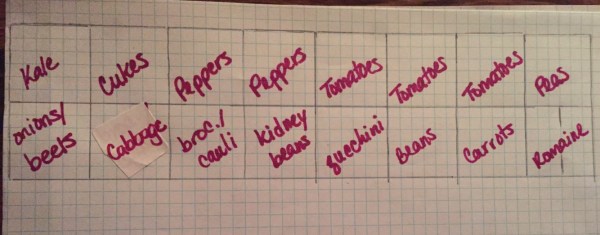 Kale Cukes Peppers Peppers Tomatoes Tomatoes Tomatoes Peas
onions/
beets
Cabbage
broc./
cauli
kidney
beans
zucchini
Beans
Carrots
Romaine